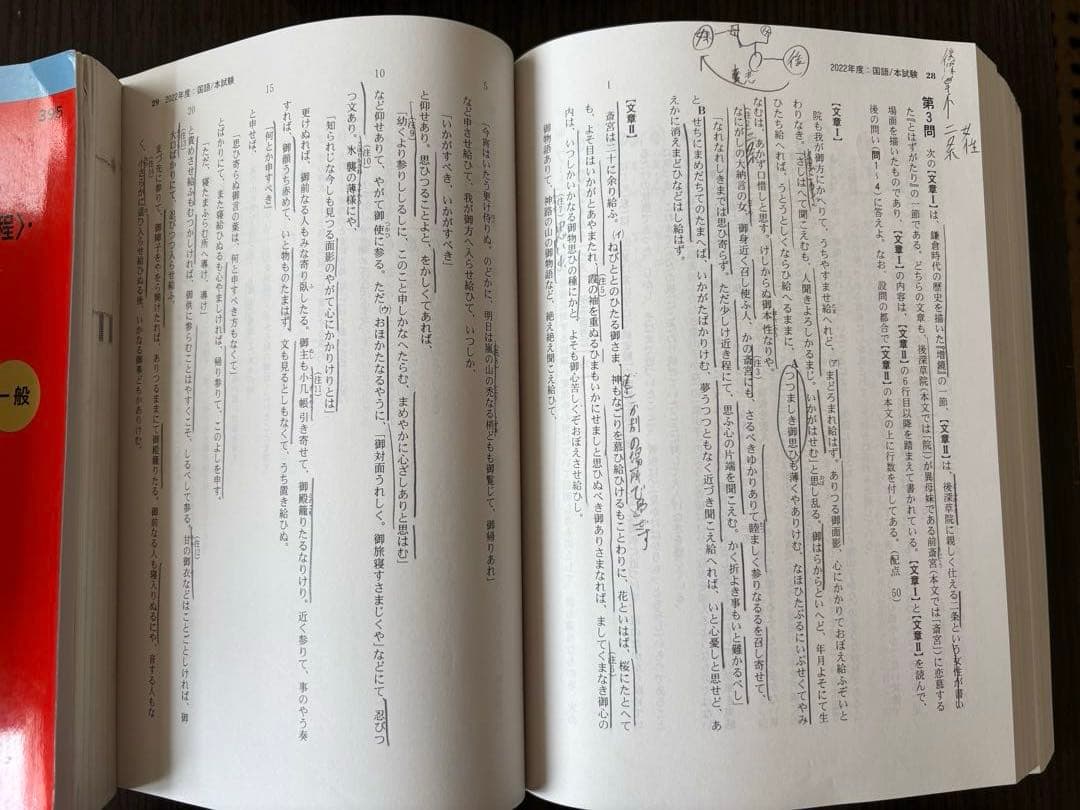 2022年度：国語/本試験 28
第3問 次の【文章Ⅰ】は、鎌倉時代の歴史を描いた『増鏡』の一節、【文章Ⅱ】は、後深草院に親しく仕える二条という女性が書い
た『とはずがたり』の一節である。どちらの文章も、後深草院(本文では「院」)が異母妹である前斎宮(本文では「斎宮」)に恋慕する
場面を描いたものであり、【文章Ⅰ】の内容は、【文章Ⅱ】の6行目以降を踏まえて書かれている。【文章Ⅰ】と【文章Ⅱ】を読んで、
後の問い(問1～4)に答えよ。なお、設問の都合で【文章Ⅱ】の本文の上に行数を付してある。(配点 50)
【文章Ⅰ】
院も我が御方にかへりて、うちやすませ給へれど、(ア)まどろまれ給はず。ありつる御面影、心にかかりておぼえ給ふぞいと
わりなき。「さしはへて聞こえむも、人聞きよろしかるまじ。いかがはせむ」と思し乱る。御はらからといへど、年月よそにて生
ひたち給へれば、うとうとしくならひ給へるままに、Aつつましき御思ひも薄くやありけむ、なほひたぶるにいぶせくてやみ
なむは、あかず口惜しと思す。けしからぬ御本性なりや。
なにがしの大納言の女、御身近く召し使ふ人、かの斎宮にも、さるべきゆかりありて睦ましく参りなるるを召し寄せて、
「なれなれしきまでは思ひ寄らず。ただ少しけ近き程にて、思ふ心の片端を聞こえむ。かく折よき事もいと難かるべし」
とBせちにまめだちてのたまへば、いかがたばかりけむ、夢うつつともなく近づき聞こえ給へれば、いと心憂しと思せど、あ
えかに消えまどひなどはし給はず。
【文章Ⅱ】
1 斎宮は二十に余り給ふ。(イ)ねびととのひたる御さま、神もなごりを慕ひ給ひけるもことわりに、花といはば、桜にたとへて
も、よそ目はいかがとあやまたれ、霞の袖を重ぬるひまもいかにせましと思ひぬべき御ありさまなれば、ましてくまなき御心の
内は、いつしかいかなる御物思ひの種にかと、よそも御心苦しくぞおぼえさせ給ひし。
御物語ありて、神路の山の御物語など、絶え絶え聞こえ給ひて、
29 2022年度：国語/本試験
5 「今宵はいたう更け侍りぬ。のどかに、明日は嵐の山の禿なる梢どもも御覧じて、御帰りあれ」
など申させ給ひて、我が御方へ入らせ給ひて、いつしか、
「いかがすべき、いかがすべき」
と仰せあり。思ひつることよと、をかしくてあれば、
「幼くより参りししるしに、このこと申しかなへたらむ、まめやかに心ざしありと思はむ」
10 など仰せありて、やがて御使に参る。ただ(ウ)おほかたなるやうに、「御対面うれしく。御旅寝すさまじくや」などにて、忍びつ
つ文あり。氷襲の薄様にや、
「知られじな今しも見つる面影のやがて心にかかりけりとは」
更けぬれば、御前なる人もみな寄り臥したる。御主も小几帳引き寄せて、御殿籠りたるなりけり。近く参りて、事のやう奏
すれば、御顔うち赤めて、いと物ものたまはず。文も見るとしもなくて、うち置き給ひぬ。
15 「何とか申すべき」
と申せば、
「思ひ寄らぬ御言の葉は、何と申すべき方もなくて」
とばかりにて、また寝給ひぬるも心やましければ、帰り参りて、このよしを申す。
「ただ、寝たまふらむ所へ導け、導け」
20 と責めさせ給ふもむつかしければ、御供に参らむことはやすくこそ、しるべして参る。甘の御衣などはことごとしければ、御
大口ばかりにて、忍びつつ入らせ給ふ。
まづ先に参りて、御障子をやをら開けたれば、ありつるままにて御殿籠りたる。御前なる人も寝入りぬるにや、音する人もな
く、小さらかに這ひ入らせ給ひぬる後、いかなる御事どもかありけむ。
395
一般